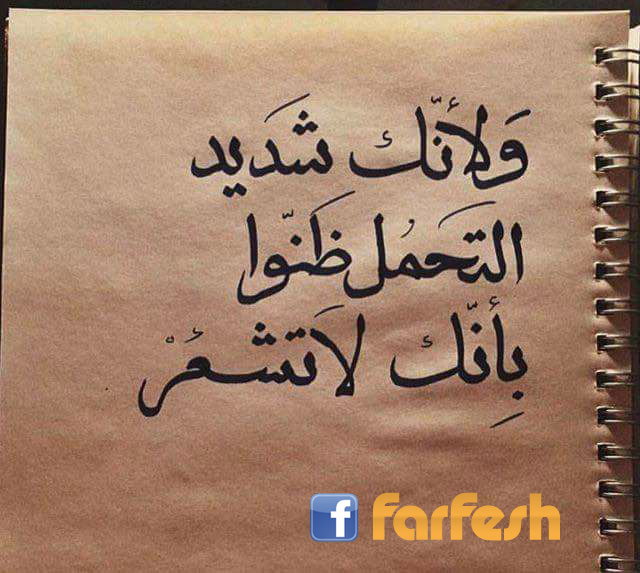 وَلأنّك شَديد
التَحمُل ظَنّوا
بِأنّك لاَتشعُرْ
f farfesh